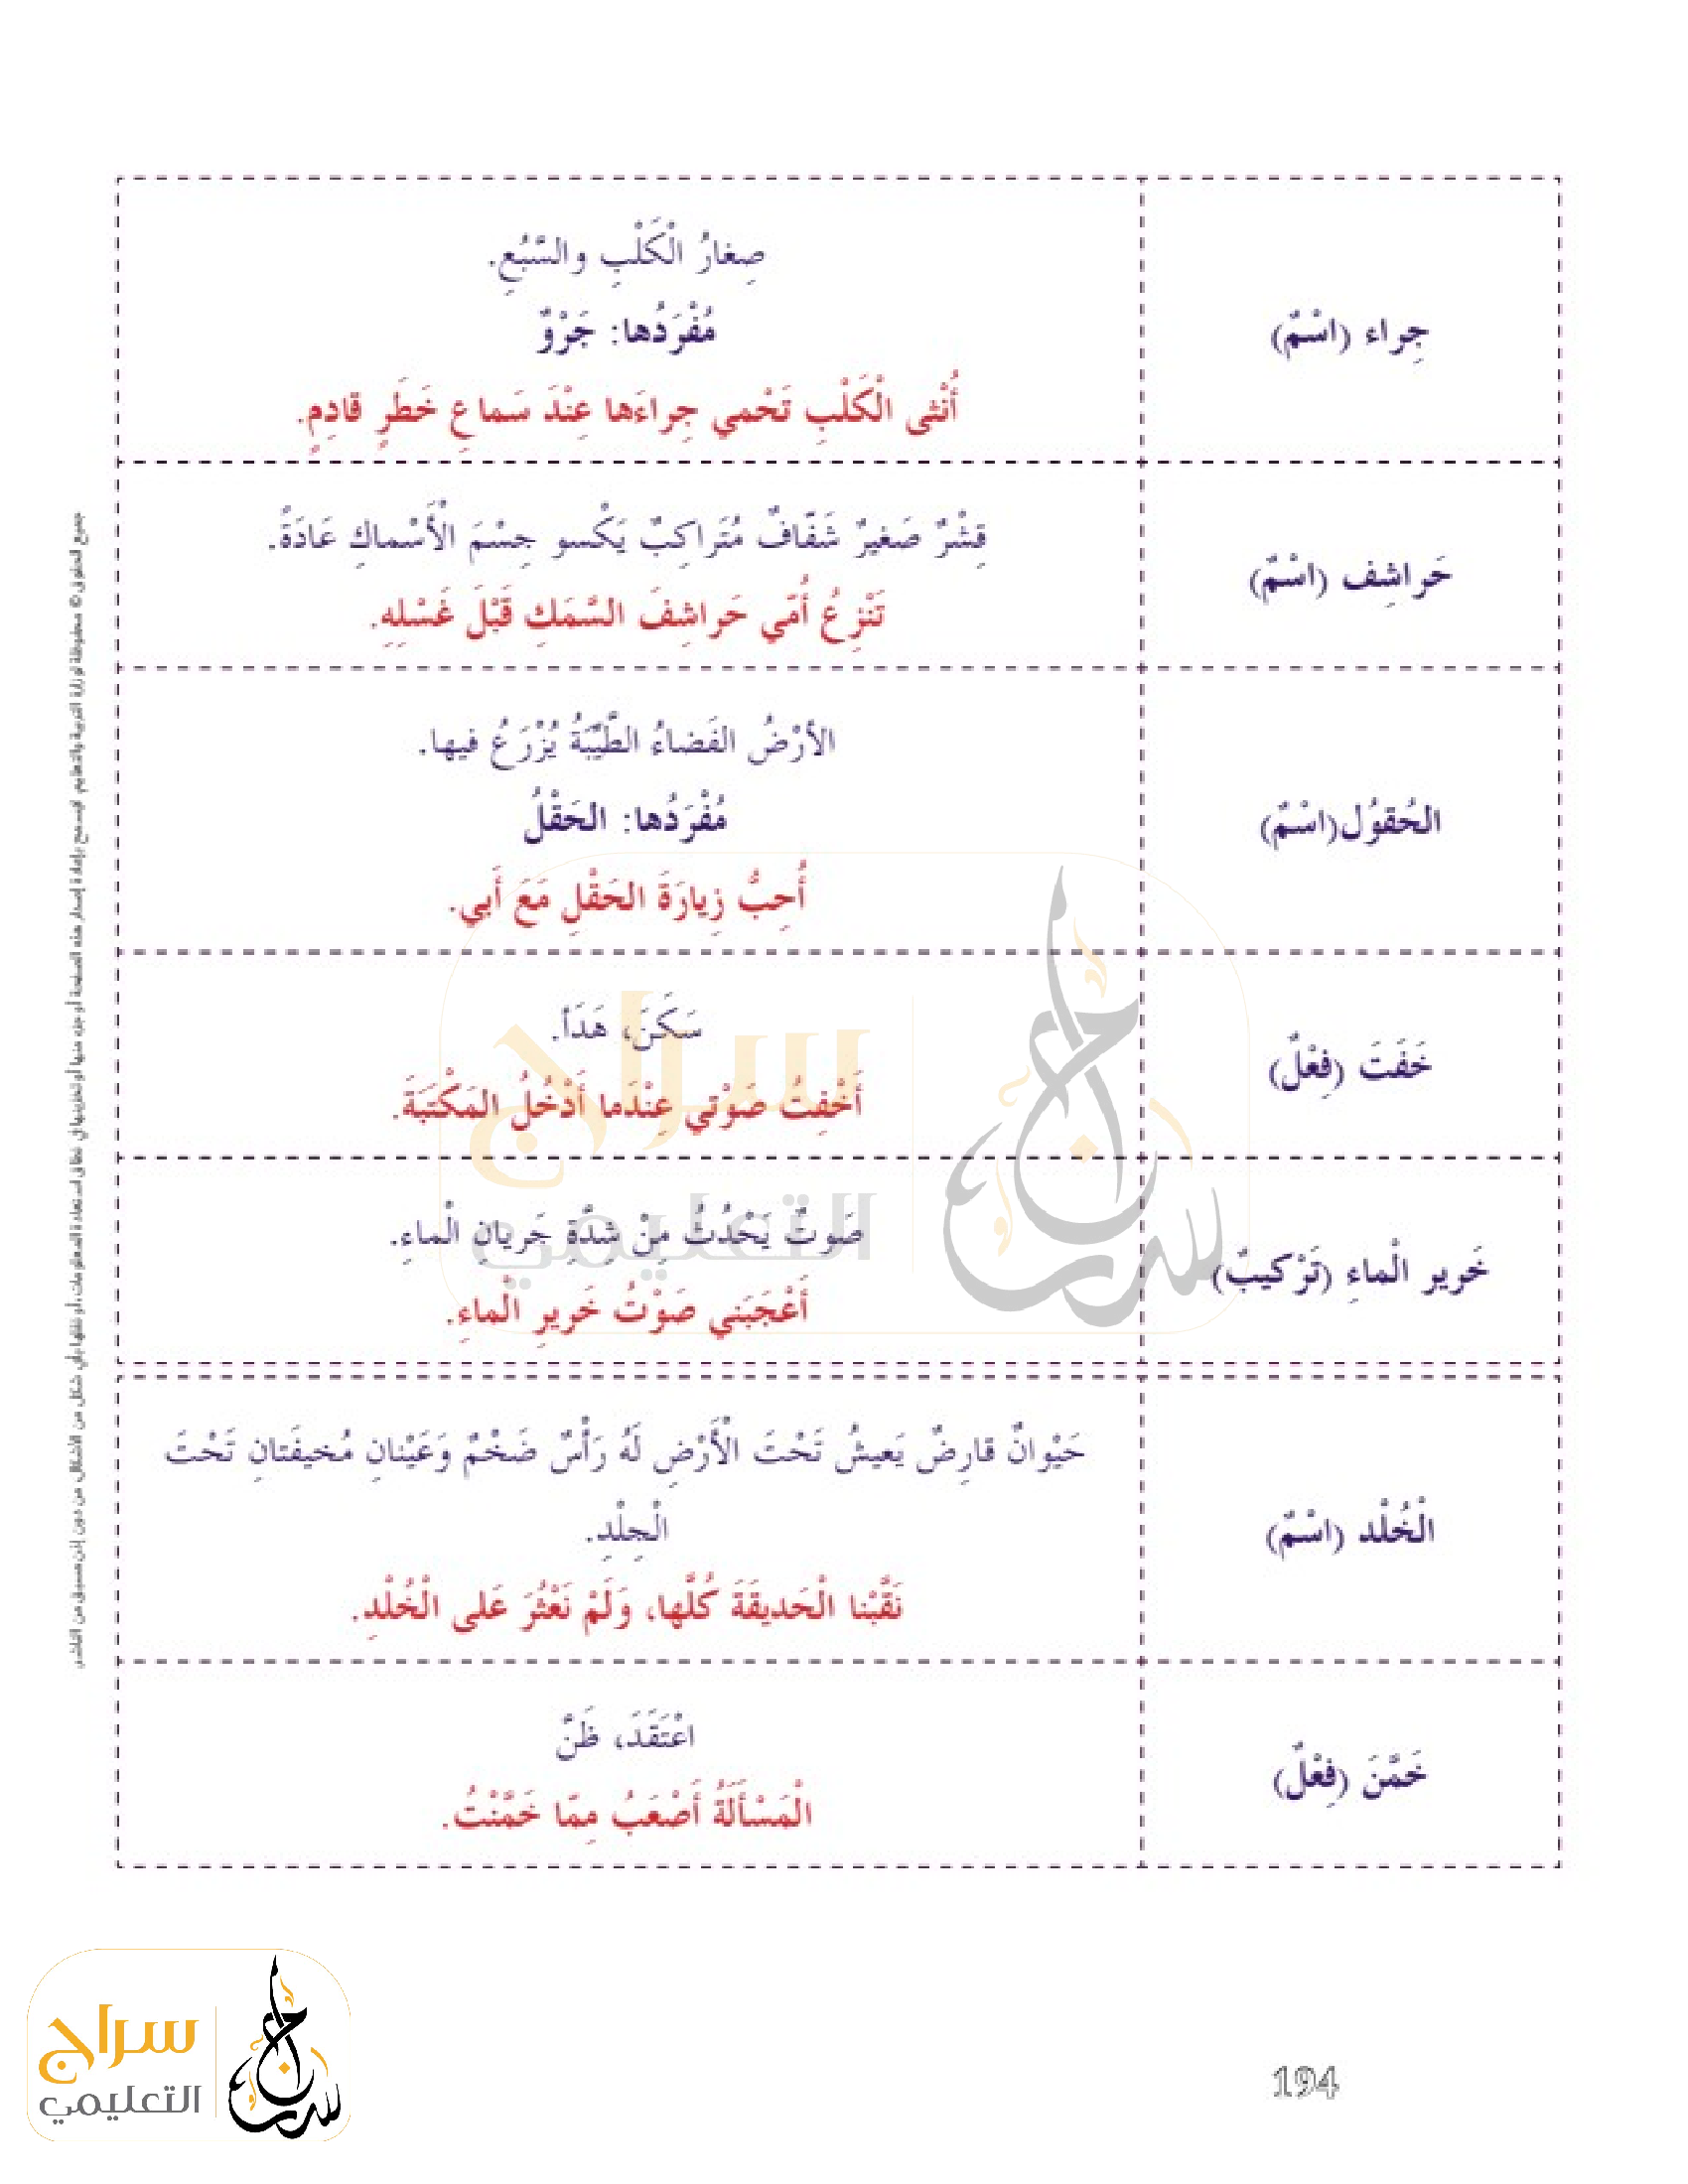 جِراء (اسْمٌ)
صِغارُ الْكَلْبِ والسَّبُعِ.
مُفْرَدُها: جَرْوٌ
أُنْثى الْكَلْبِ تَحْمي جِراءَها عِنْدَ سَماعِ خَطَرٍ قادِمٍ.
حَراشِف (اسْمٌ)
قِشْرٌ صَغيرٌ شَفّافٌ مُتَراكِبٌ يَكْسو جِسْمَ الْأَسْماكِ عَادَةً.
تَنْزِعُ أُمّي حَراشِفَ السَّمَكِ قَبْلَ غَسْلِهِ.
الحُقوُل(اسْمٌ)
الأرْضُ الفَضاءُ الطَّيِّبَةُ يُزْرَعُ فيها.
مُفْرَدُها: الحَقْلُ
أُحِبُّ زِيارَةَ الحَقْلِ مَعَ أَبي.
خَفَتَ (فِعْلٌ)
سَكَنَ، هَدَأ.
أَخْفِتُ صَوْتي عِنْدَما أَدْخُلُ المَكْتَبَةَ.
خَرير الْماءِ (تَرْكيبٌ)
صَوتٌ يَحْدُثُ مِنْ شِدَّةِ جَريانِ الْماءِ.
أَعْجَبَني صَوْتُ خَريرِ الْماءِ.
الْخُلْد (اسْمٌ)
حَيْوانٌ قارِضٌ يَعيشُ تَحْتَ الْأَرْضِ لَهُ رَأْسٌ ضَخْمٌ وَعَيْنانِ مُخيفَتانِ تَحْتَ
الْجِلْدِ.
نَقَّبْنا الْحَديقَةَ كُلَّها، وَلَمْ نَعْثُرَ عَلى الْخُلْدِ.
خَمَّنَ (فِعْلٌ)
اعْتَقَدَ، ظَنَّ
الْمَسْأَلَةُ أَصْعَبُ مِمّا خَمَّنْتُ.
جميع الحقوق © محفوظة لوزارة التربية والتعليم. لايسمح بإعادة إصدار هذه الصفحة أو جزء منها أو تخزينها في نطاق استعادة المعلومات، أو نقلها بأي شكل من الأشكال من دون إذن مسبق من الناشر.
سراج
التعليمي
سراج
سراج
التعليمي
سراج
194